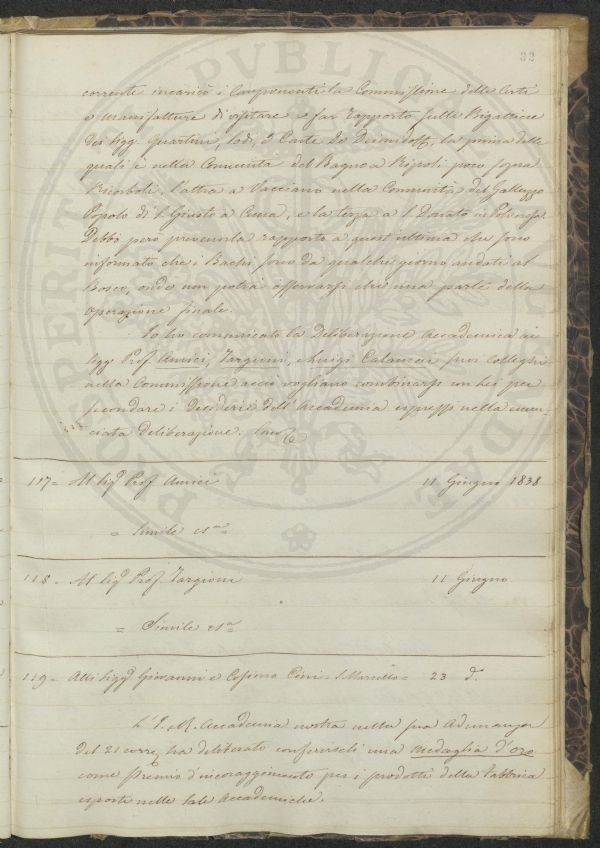 33
corrente incaricò i Componenti la Commissione delle Arti
e Manifatture di visitare e far rapporto sulle Bigattiere
dei Sigg. Quartini, Lodi, e Conte De Demidoff, la prima delle
quali è nella Comunità del Bagno a Ripoli poco sopra
Ricorboli, l'altra a Vacciano nella Comunità del Galluzzo
Popolo di S. Giusto a Ema, e la terza a S. Donato in Polverosa.
Debbo però prevenirla rapporto a quest'ultima che sono
informato che i Bachi sono da qualche giorno andati al
bosco, onde non potrà osservarsi che una parte della
operazione finale.
Io ho comunicato la Deliberazione Accademica ai
Sigg. Prof. Amici, Targioni, e Luigi Calamai suoi colleghi
nella Commissione acciò vogliano combinarsi con Lei per
secondare i Desideri dell'Accademia espressi nella enun-
ciata deliberazione. Sono
117= Al Sig. Prof. Amici 11 Giugno 1838
= Simile
118- Al Sig. Prof. Targioni 11 Giugno
= Simile
119- Alli Sigg. Giovanni e Cosimo Cini - S. Marcello = 23 d.
L'I. e R. Accademia nostra nella sua Adunanza
del 21 corre. ha deliberato conferirseli una medaglia d'oro
come Premio d'incoraggimento per i prodotti della fabbrica
esposti nelle Sale Accademiche.
PVBLICAE
PROSPERITATI